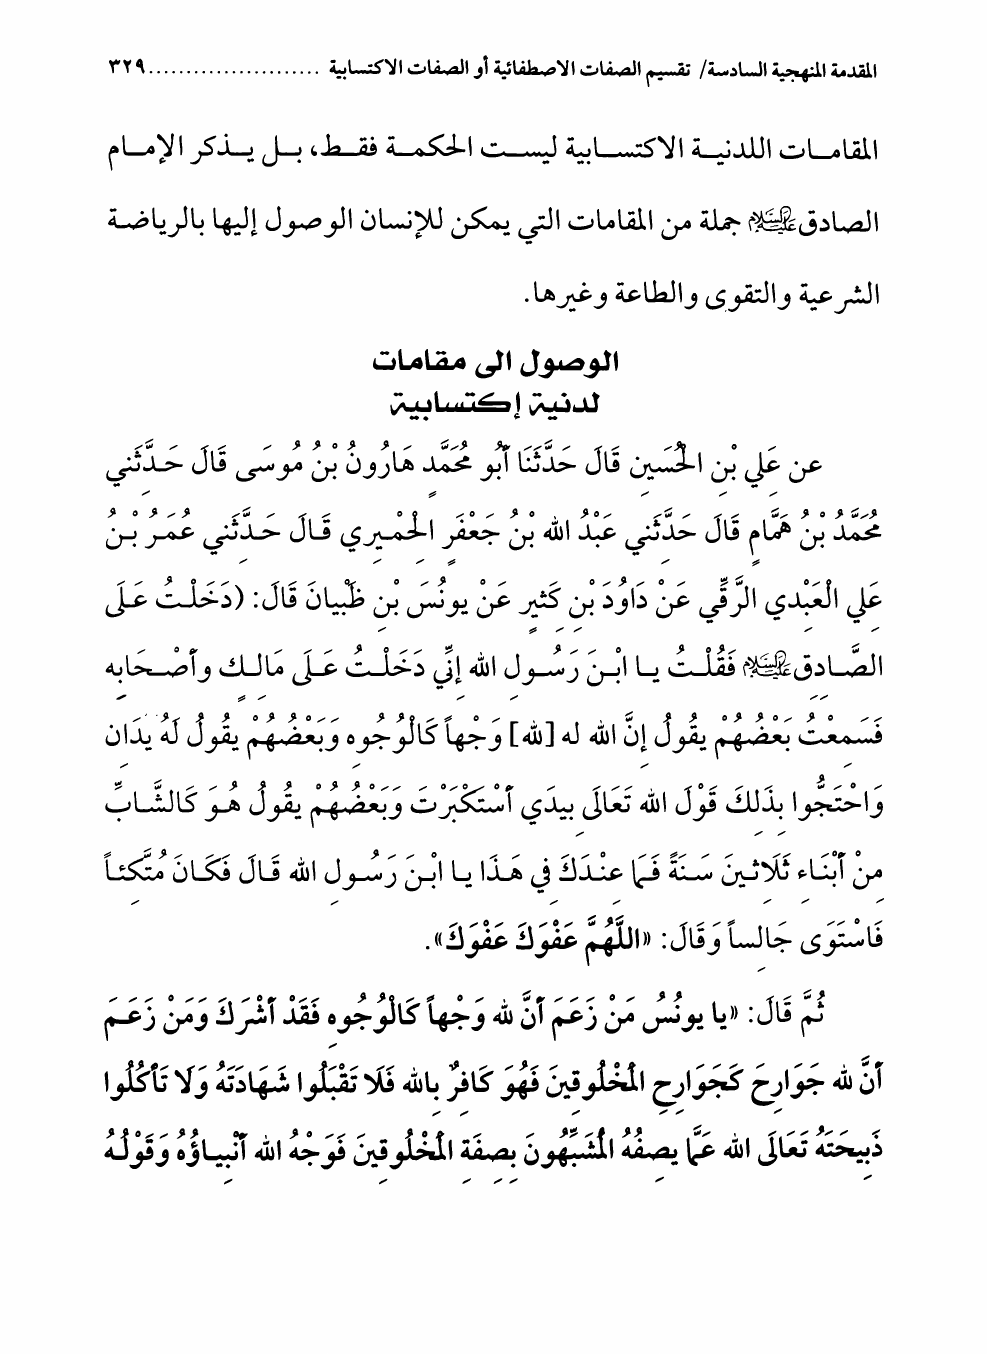 المقدمة المنهجية السادسة/ تقسيم الصفات الاصطفائية أو الصفات الاكتسابية ....................... ٣٢٩
المقامات اللدنية الاكتسابية ليست الحكمة فقط، بل يذكر الإمام
الصادق عليه السلام جملة من المقامات التي يمكن للإنسان الوصول إليها بالرياضة
الشرعية والتقوى والطاعة وغيرها.
الوصول الى مقامات
لدنية إكتسابية
عن عَلِي بْنِ الحُسَينِ قَالَ حَدَّثَنَا أَبُو مُحَمَّدٍ هَارُونُ بْنُ مُوسَى قَالَ حَدَّثَنِي
مُحَمَّدُ بْنُ هَمَّامٍ قَالَ حَدَّثَنِي عَبْدُ الله بْنُ جَعْفَرٍ الْحِمْيرِي قَالَ حَدَّثَنِي عُمَرُ بْنُ
عَلِي الْعَبْدِي الرَّقِّي عَنْ دَاوُدَ بْنِ كَثِيرٍ عَنْ يونُسَ بْنِ ظَبْيانَ قَالَ: (دَخَلْتُ عَلَى
الصَّادِقِ عليه السلام فَقُلْتُ يا ابْنَ رَسُولِ الله إِنِّي دَخَلْتُ عَلَى مَالِكٍ وأَصْحَابِهِ
فَسَمِعْتُ بَعْضُهُمْ يقُولُ إِنَّ الله له [لله] وَجْهاً كَالْوُجُوهِ وَبَعْضُهُمْ يقُولُ لَهُ يدَانِ
وَاحْتَجُّوا بِذَلِكَ قَوْلَ الله تَعَالَى بِيدَي أَسْتَكْبَرْتَ وَبَعْضُهُمْ يقُولُ هُوَ كَالشَّابِّ
مِنْ أَبْنَاءِ ثَلَاثِينَ سَنَةً فَمَا عِنْدَكَ فِي هَذَا يا ابْنَ رَسُولِ الله قَالَ فَكَانَ مُتَّكِئاً
فَاسْتَوَى جَالِساً وَقَالَ: «اللَّهُمَّ عَفْوَكَ عَفْوَكَ».
ثُمَّ قَالَ: «يا يونُسُ مَنْ زَعَمَ أَنَّ لله وَجْهاً كَالْوُجُوهِ فَقَدْ أَشْرَكَ وَمَنْ زَعَمَ
أَنَّ لله جَوَارِحَ كَجَوَارِحِ الْمَخْلُوقِينَ فَهُوَ كَافِرٌ بِالله فَلَا تَقْبَلُوا شَهَادَتَهُ وَلَا تَأْكُلُوا
ذَبِيحَتَهُ تَعَالَى الله عَمَّا يصِفُهُ الْمُشَبِّهُونَ بِصِفَةِ الْمَخْلُوقِينَ فَوَجْهُ الله أَنْبِياؤُهُ وَقَوْلُهُ